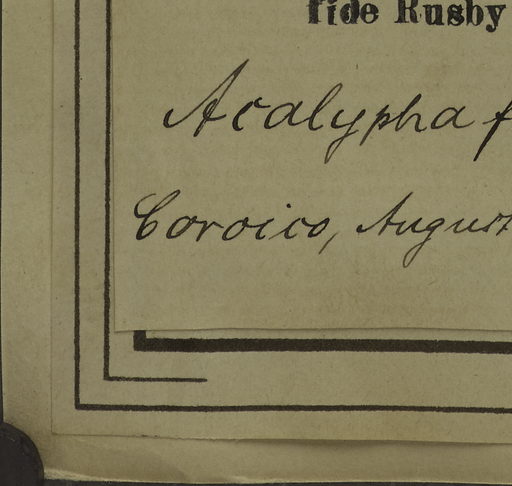 fide Rusby
Acalypha f
Coroico, August